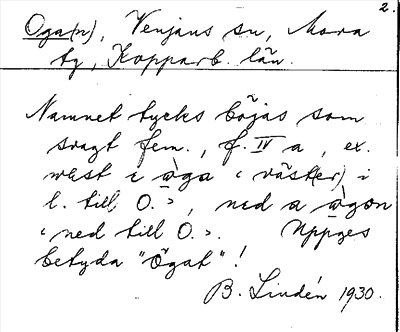 2.
Oga(n), Venjans sn, Mora
tg, Kopparb. län.
Namnet tycks böjas som
svagt fem., f. IV a, ex.
wäst i ǫga "väst(er) i
l. till O.", ned a ǫgon
"ned till O.". Uppges
betyda "Ögat"!
B. Lindén 1930.